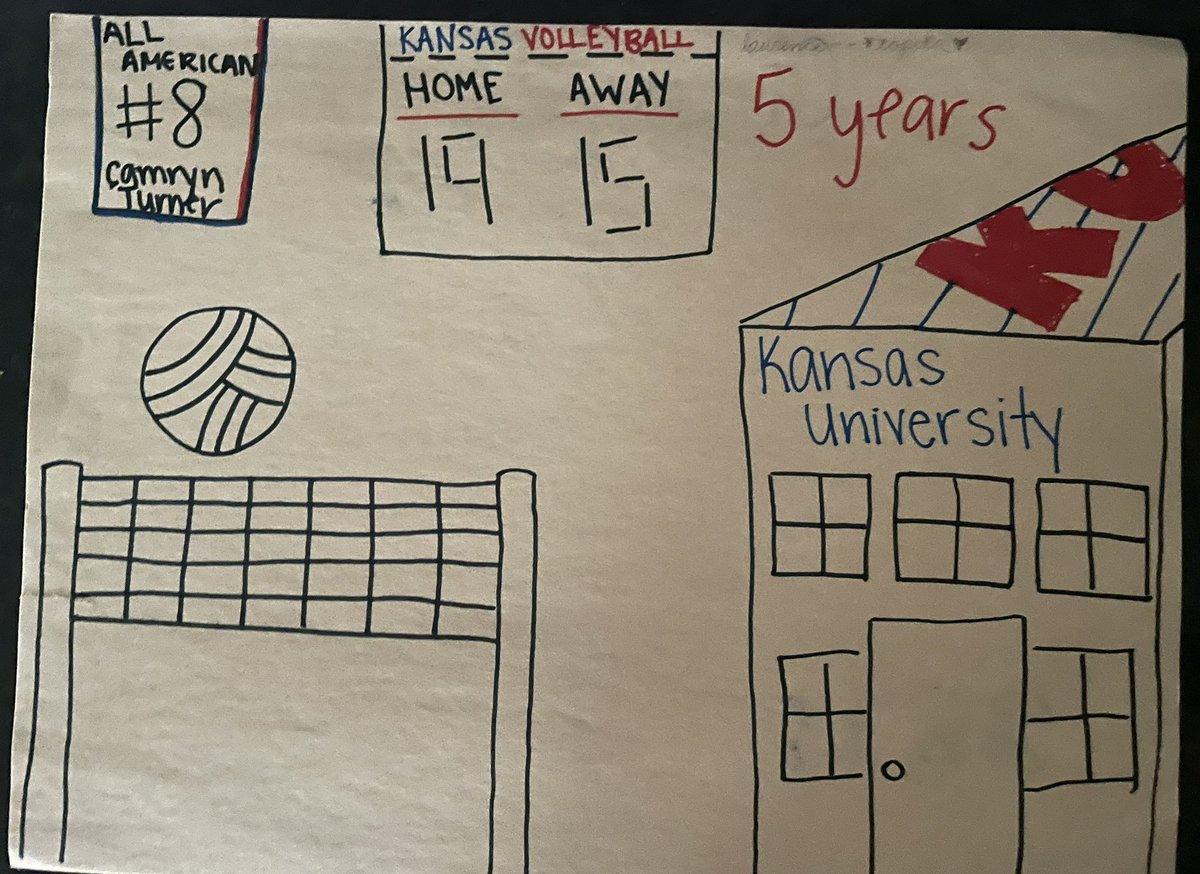 ALL
AMERICAN
#8
Camryn
Turner
KANSAS VOLLEYBALL
HOME AWAY
19 15
5 years
KU
Kansas
University